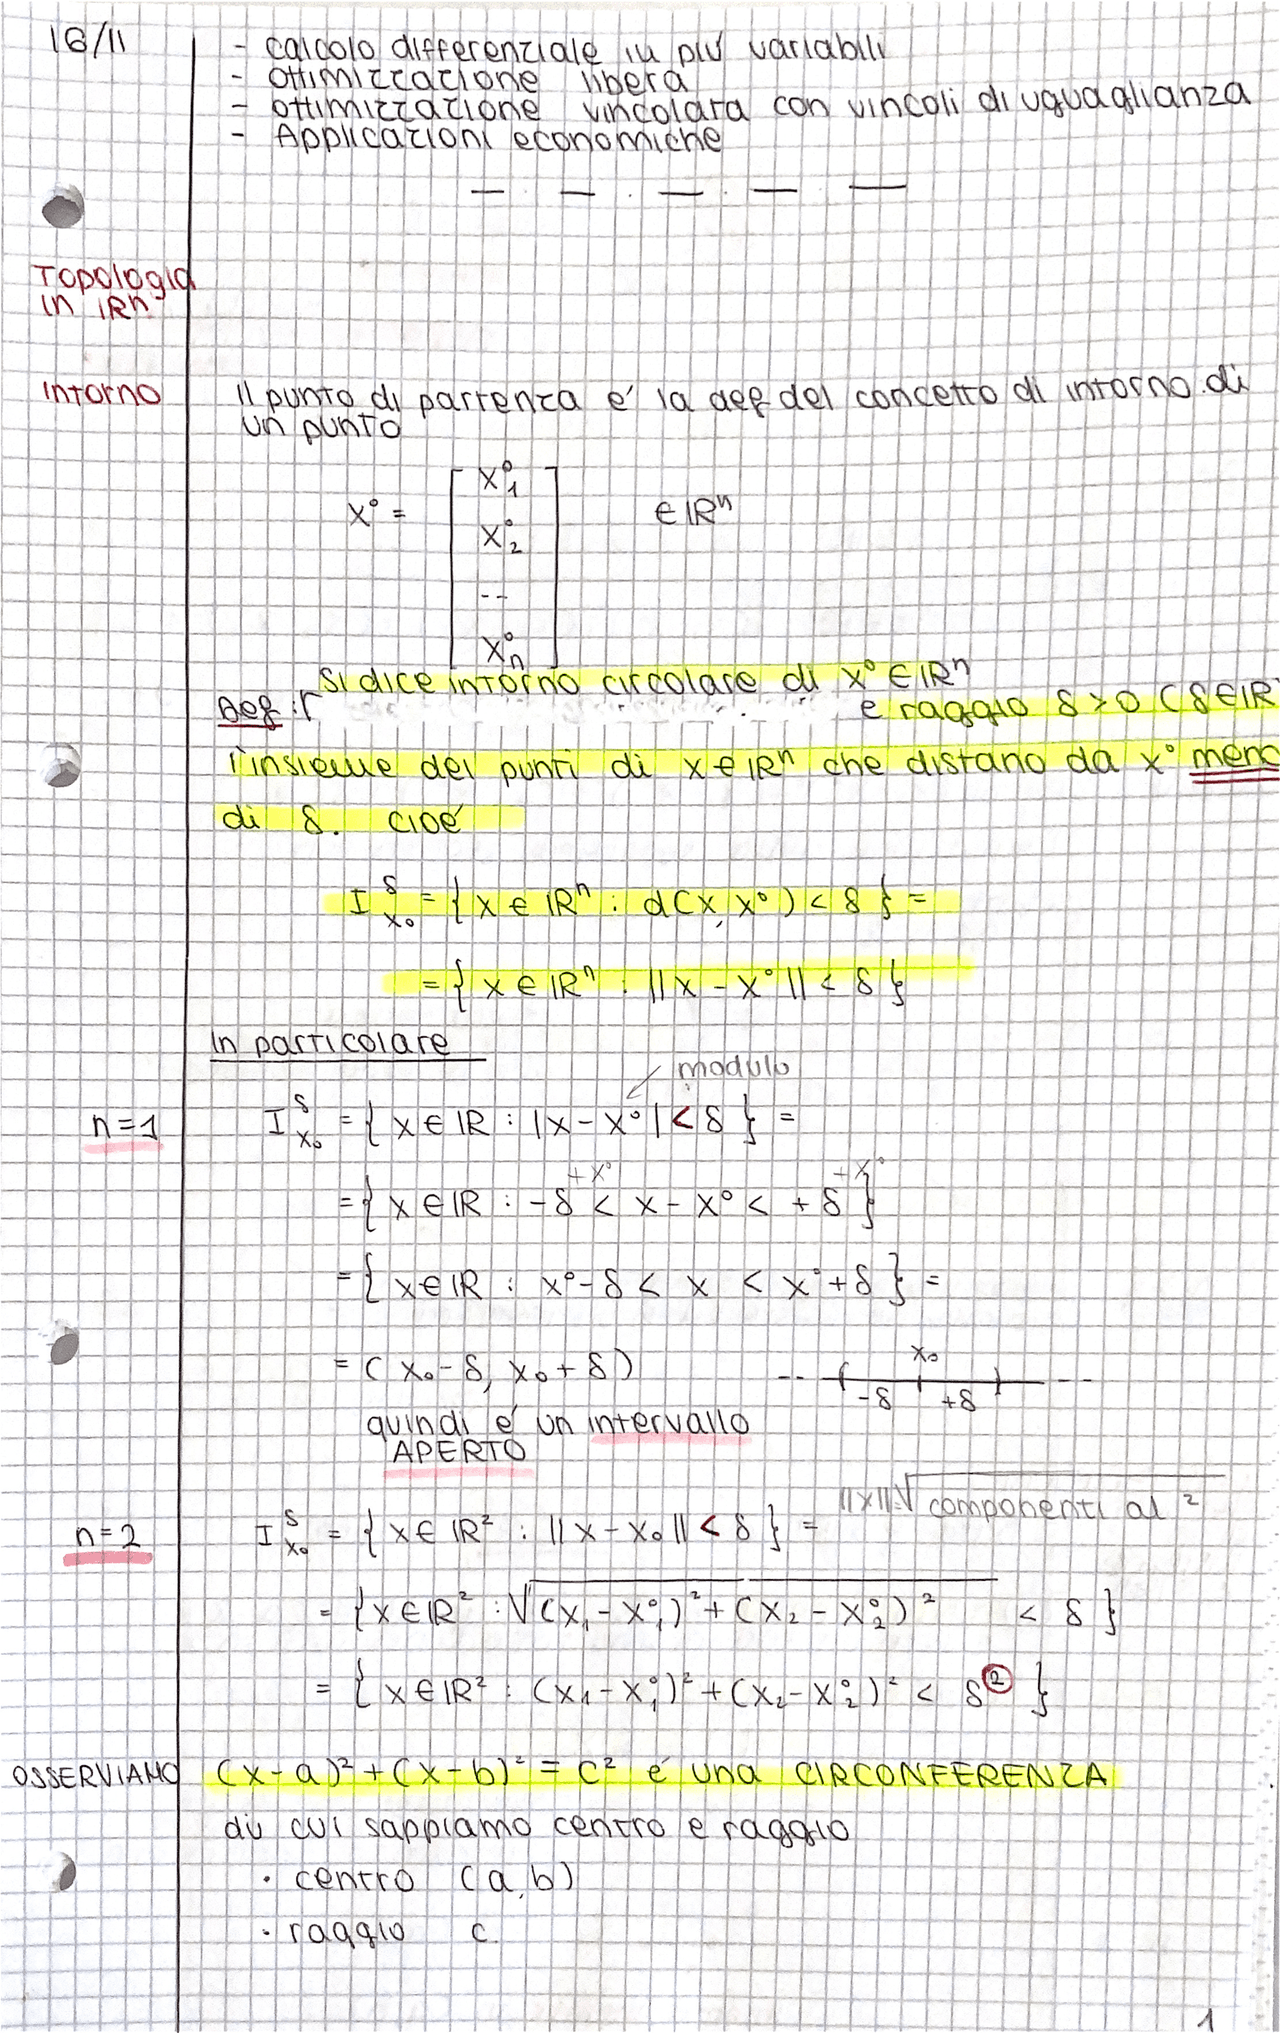 16/11
- calcolo differenziale in più variabili
- ottimizzazione libera
- ottimizzazione vincolata con vincoli di uguaglianza
- Applicazioni economiche
Topologia
in ℝn
Intorno
Il punto di partenza é la def del concetto di intorno di
un punto
x° = [ x°₁ x°₂ -- x°ₙ ] ∈ ℝⁿ
Si dice intorno circolare di x° ∈ ℝⁿ
Def: e raggio δ > 0 (δ ∈ ℝ
l'insieme dei punti di x ∈ ℝⁿ che distano da x° meno
di δ. cioé
I^δ_x₀ = { x ∈ ℝⁿ : d(x, x°) < δ } =
= { x ∈ ℝⁿ : ||x - x°|| < δ }
In particolare
modulo
n=1 I^δ_x₀ = { x ∈ ℝ : |x - x°| < δ } =
+x° +x°
= { x ∈ ℝ : -δ < x - x° < +δ }
= { x ∈ ℝ : x° - δ < x < x° + δ } =
= ( x₀ - δ, x₀ + δ )
-- x₀ --
-δ +δ
quindi é un intervallo
APERTO
||x||=√componenti al ²
n=2 I^δ_x₀ = { x ∈ ℝ² : ||x - x₀|| < δ } =
= { x ∈ ℝ² : √(x₁ - x°₁)² + (x₂ - x°₂)² < δ }
= { x ∈ ℝ² : (x₁ - x°₁)² + (x₂ - x°₂)² < δ² }
OSSERVIAMO (x-a)² + (x-b)² = c² é una CIRCONFERENZA
di cui sappiamo centro e raggio
· centro (a, b)
· raggio c
1